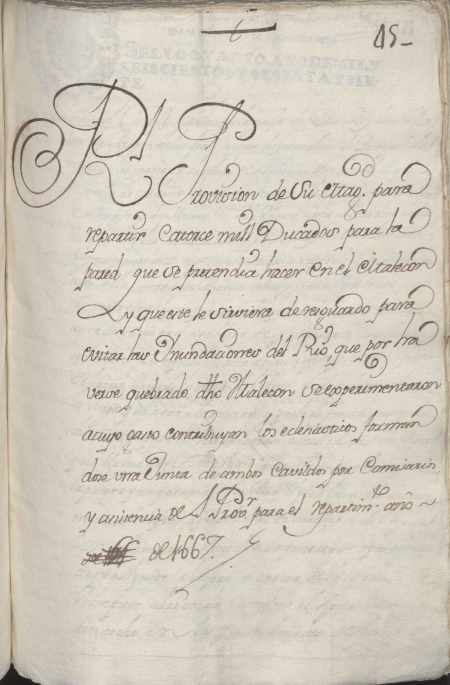 t
15-
SELLO QVARTO, AÑO DE MIL Y
SEISCIENTOS Y SESENTA Y SIE
TE.
Rl Provision de Su Mag.d para
repartir Catorce mill Ducados para la
pared que se pretendia hacer en el Malecon
y que este le sirviera de resguardo para
evitar las Inundaciones del Rio, que por ha
verse quebrado dho Malecon se experimentaron
a cuyo gasto contribuyan los eclesiasticos forman
dose una Junta de ambos Cavildos por Comisarios
y asistencia del Provr para el repartimto año
de 1667.